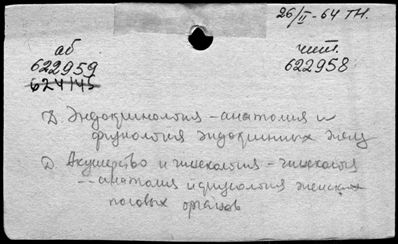 26/II - 64 ТН.
аб
622959
624145
чит.
622958
Д. Эндокринология - анатомия и
физиология эндокринных желез
Д. Акушерство и гинекология - гинекология
- анатомия и физиология женских
половых органов